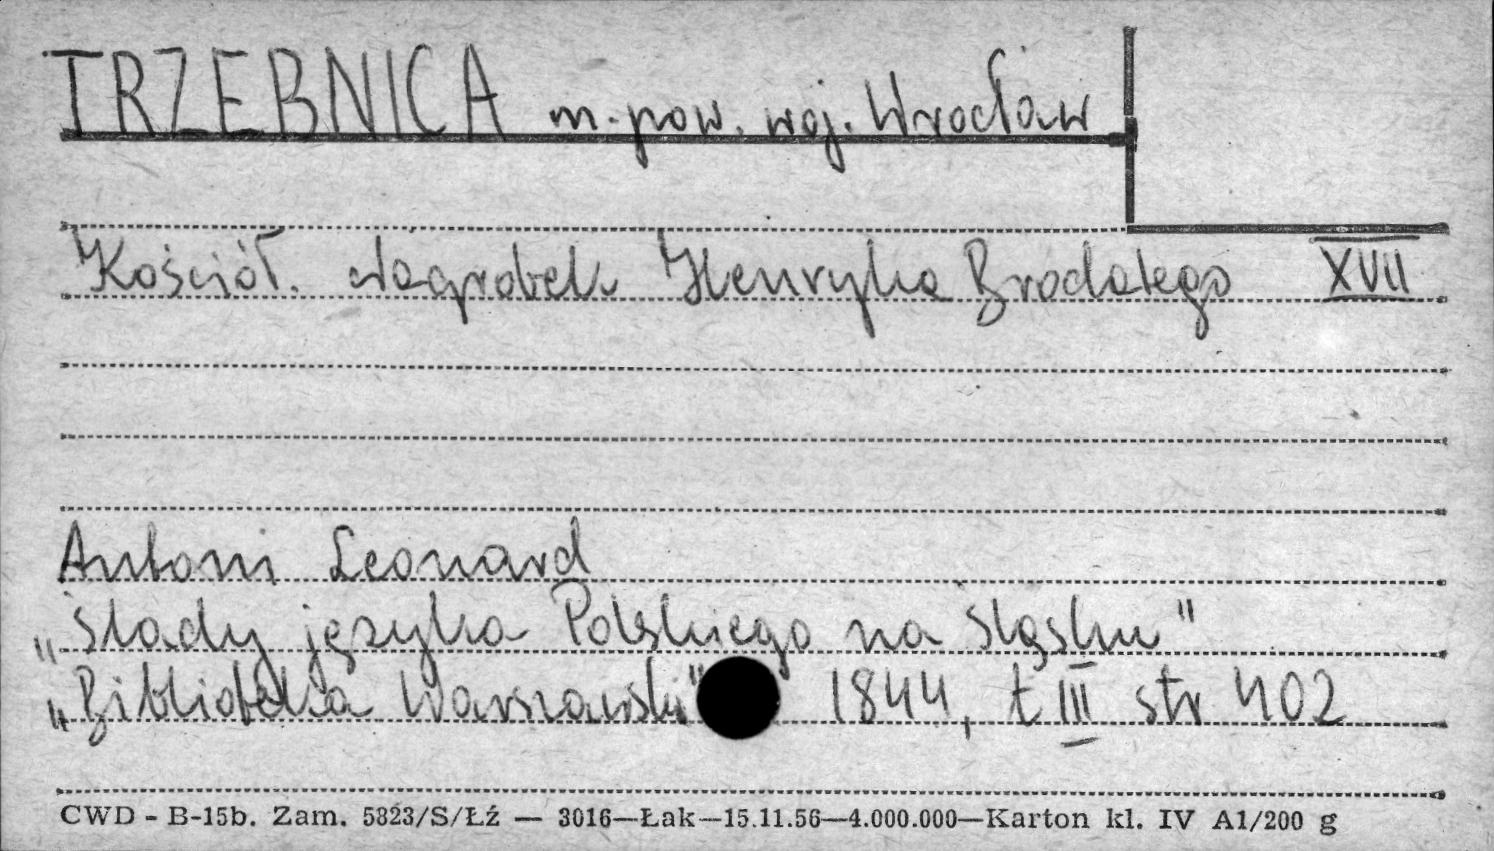 TRZEBNICA m. pow. woj. Wrocław
Kościół. Nagrobek Henryka Brodatego XVII
Antoni Leonard
„Ślady języka Polskiego na Śląsku"
„Biblioteka Warszawska" 1844, t III str 402
CWD - B-15b. Zam. 5823/S/Łź — 3016—Łak—15.11.56—4.000.000—Karton kl. IV A1/200 g